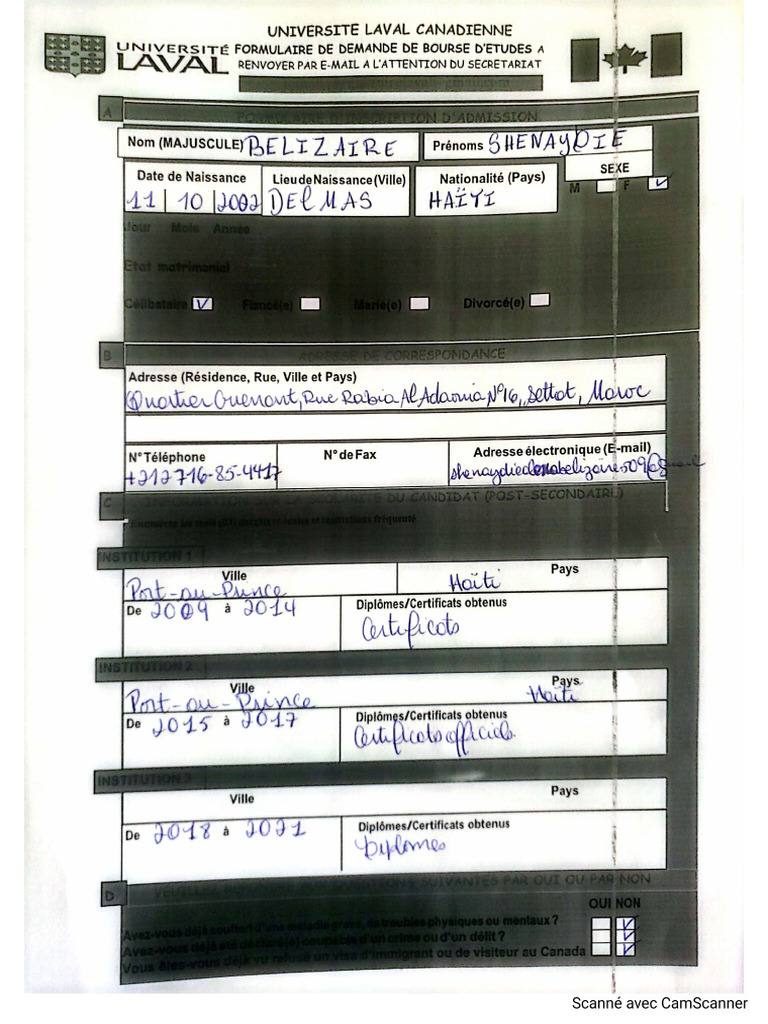 UNIVERSITE LAVAL CANADIENNE
UNIVERSITÉ LAVAL
FORMULAIRE DE DEMANDE DE BOURSE D'ETUDES A
RENVOYER PAR E-MAIL A L'ATTENTION DU SECRETARIAT
A
FORMULAIRE D'INSCRIPTION D'ADMISSION
Nom (MAJUSCULE) BELIZAIRE Prénoms SHENAYDIE
Date de Naissance Lieu de Naissance (Ville) Nationalité (Pays) SEXE
11 | 10 | 2002 DELMAS HAÏTI M F ✓
Jour Mois Année
Etat matrimonial
Célibataire ✓ Fiancé(e) Marié(e) Divorcé(e)
B ADRESSE DE CORRESPONDANCE
Adresse (Résidence, Rue, Ville et Pays)
Quartier Rue Rabia Al N°16, Settat, Maroc
N° Téléphone N° de Fax Adresse électronique (E-mail)
+212716-85-4417
C INFORMATION SUR LA SCOLARITE DU CANDIDAT (POST-SECONDAIRE)
INSTITUTION 1
Ville Pays
Port-au-Prince Haïti
De 2009 à 2014 Diplômes/Certificats obtenus
Certificats
INSTITUTION 2
Ville Pays
Port-au-Prince Haïti
De 2015 à 2017 Diplômes/Certificats obtenus
Certificats officiels
INSTITUTION 3
Ville Pays
De 2018 à 2021 Diplômes/Certificats obtenus
Diplomes
D VEUILLEZ REPONDRE AUX QUESTIONS SUIVANTES PAR OUI OU PAR NON
OUI NON
Avez-vous déjà souffert d'une maladie grave, de troubles physiques ou mentaux ? ✓
Avez-vous déjà été déclaré(e) coupable d'un crime ou d'un délit ? ✓
Vous êtes-vous déjà vu refusé un visa d'immigrant ou de visiteur au Canada ✓
Scanné avec CamScanner